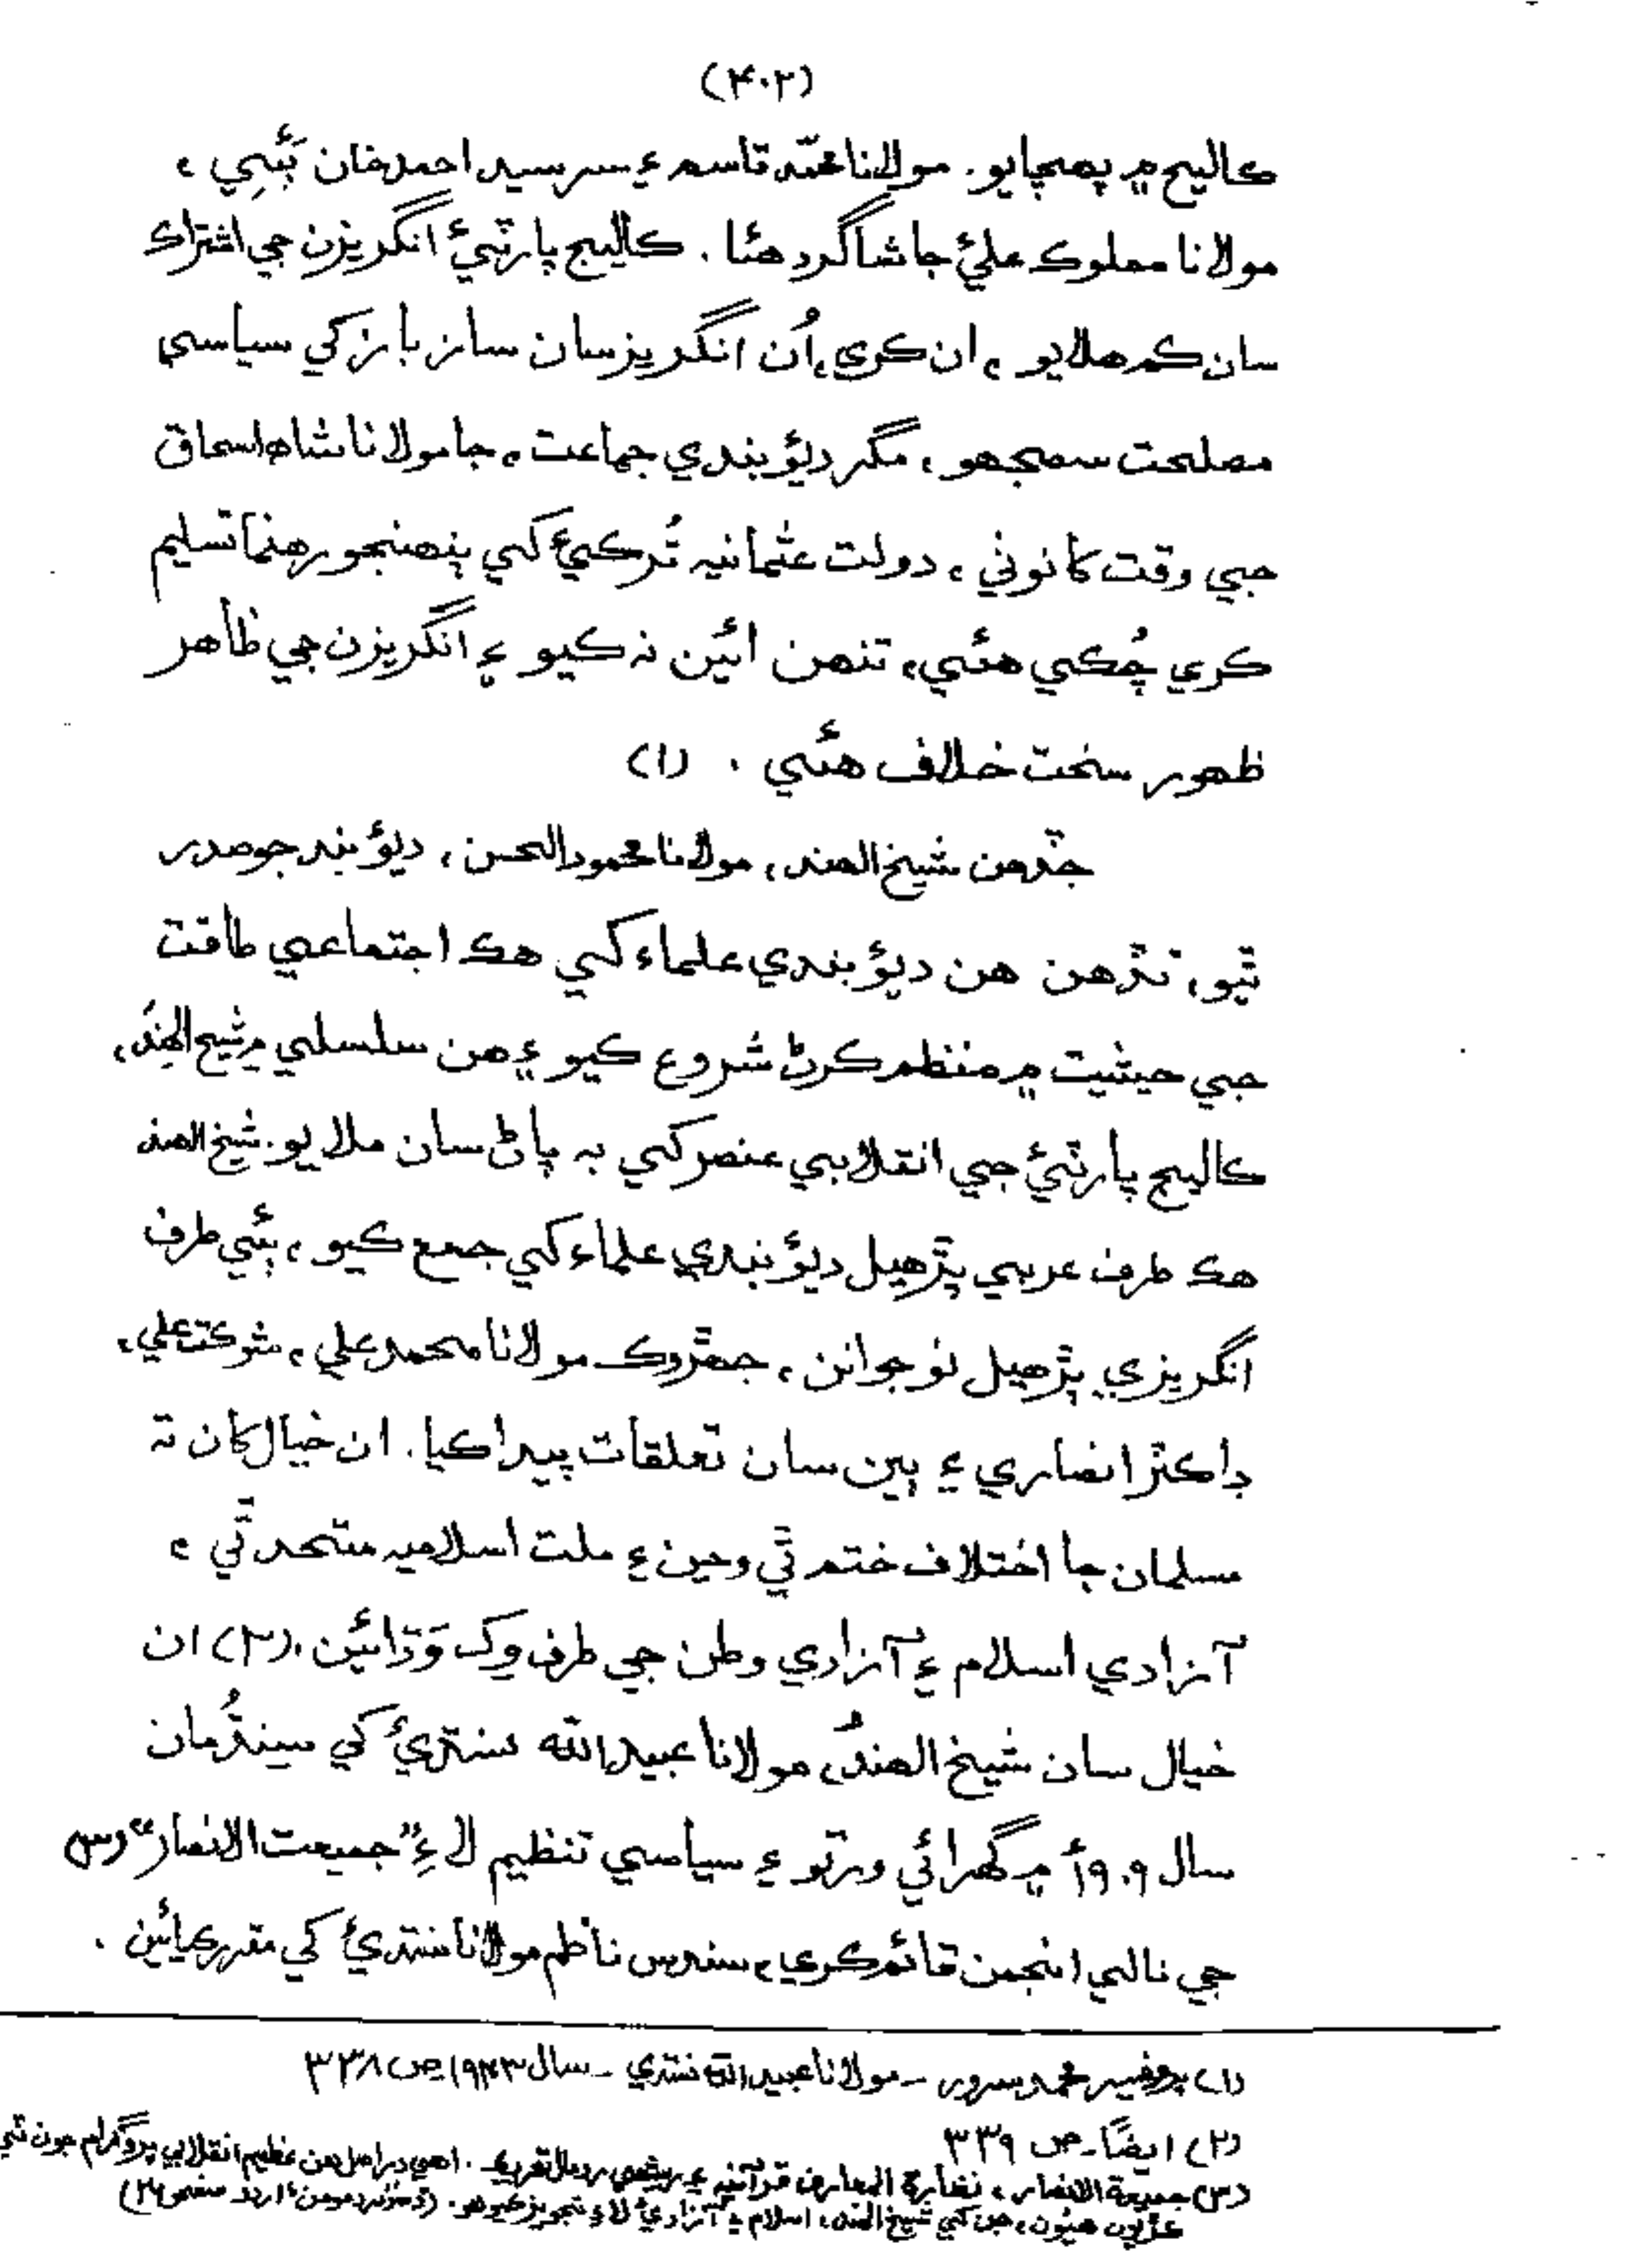 (۴۰۲)
ڪاليج ۾ پهچايو. مولانا محمّد قاسم ۽ سر سيد احمد خان ٻَئِي ،
مولانا مملوڪ عليؒ جا شاگرد هئا . ڪاليج پارٽيءَ انگريزن جي اشتراڪ
سان ڪم هلايو ، ان ڪري، اُن انگريز سان ساز باز کي سياسي
مصلحت سمجهو ، مگر ديؤبندي جماعت ، جا مولانا شاهه اسحاق
جي وقت کا نوٺي ، دولت عثمانيه تُرڪيءَ کي پنهنجو رهنما تسليم
ڪري چُڪي هئي، تنهن ائين نہ ڪيو ۽ انگريزن جي ظاهر
ظهور سخت خلاف هئي . (۱)
جڏهن شيخ الهند ، مولانا محمود الحسن ، ديؤبند جو صدر
ٿيو ، تڏهن هن ديؤبندي علماء کي هڪ اجتماعي طاقت
جي حيثيت ۾ منظم ڪرڻ شروع ڪيو ۽ هن سلسلي ۾ شيخ الهندؒ ،
ڪاليج پارٽيءَ جي انقلابي عنصر کي بہ پاڻ سان ملايو. شيخ الهند
هڪ طرف عربي پڙهيل ديؤبندي علماء کي جمع ڪيو ، ٻئي طرف
انگريزي پڙهيل نوجوانن ، جهڙوڪ مولانا محمد علي ، شوڪت علي ،
ڊاڪٽر انصاري ۽ ٻين سان تعلقات پيدا ڪيا. ان خيال کان تہ
مسلمان جا اختلاف ختم ٿي وڃن ۽ ملت اسلاميہ متحد ٿي ،
آزادي اسلام ۽ آزادي وطن جي طرف وک وَڌائين .(۲) ان
خيال سان شيخ الهندؒ، مولانا عبيدالله سنڌيءَ کي سينڌُمان
سال ۱۹۰۹ع ۾ گهرائي ورتو ۽ سياسي تنظيم لاءِ ”جميعت الانصار“ (۳)
جي نالي انجمن قائم ڪري ، سندس ناظم مولانا سنڌيءَ کي مقرر ڪيائين .
(۱) پروفيسر محمد سرور - مولانا عبيدالله سنڌي - سال ۱۹۴۳ ص ۳۳۸
(۲) ايضًا - ص ۳۳۹
(۳) جميعة الانصار ، نظارة المعارف قرآنيه ۽ ريشمي رومال تحريڪ . اهي دراصل هن عظيم انقلابي پروگرام جون ٽي
ڪڙيون هيون ، جن کي شيخ الهند، اسلام ۽ آزاديءَ لاءِ تجويز ڪيو هو.